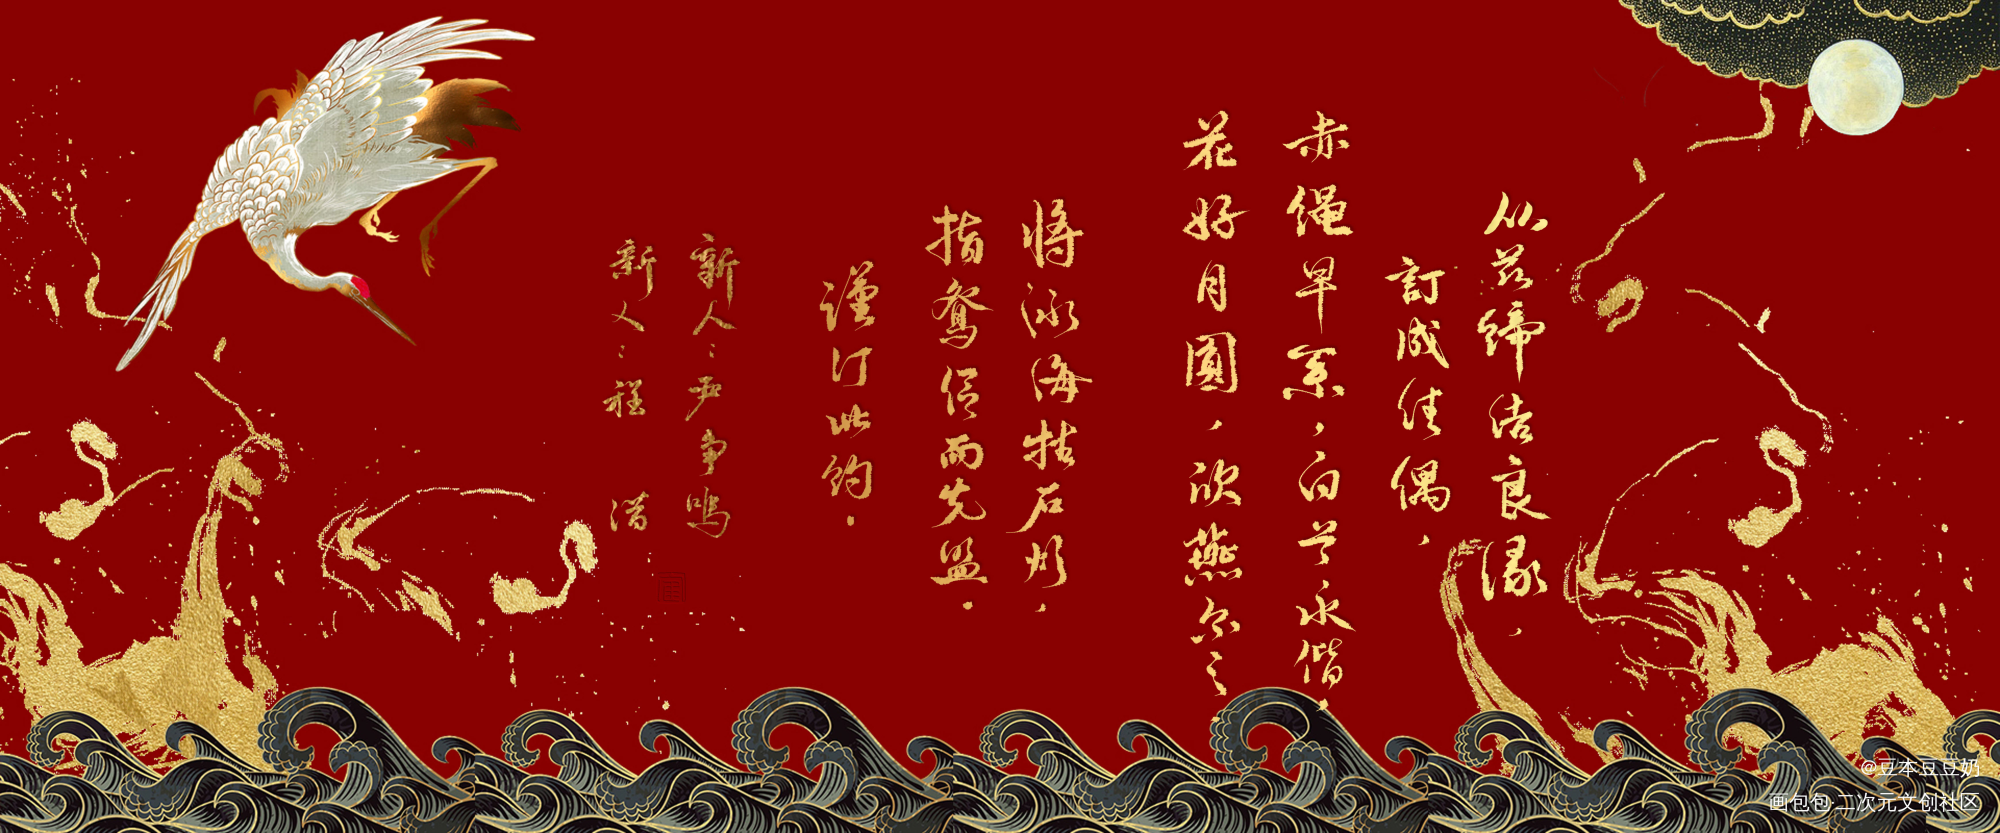 从兹缔结良缘，
訂成佳偶，
赤绳早系，白首永偕。
花好月圓，欣燕尔之，
将泳海枯石烂，
指鸳侣而先盟。
谨订此约。
新人：严争鸣
新人：程 潜
@豆本豆豆奶
画包包·二次元文创社区